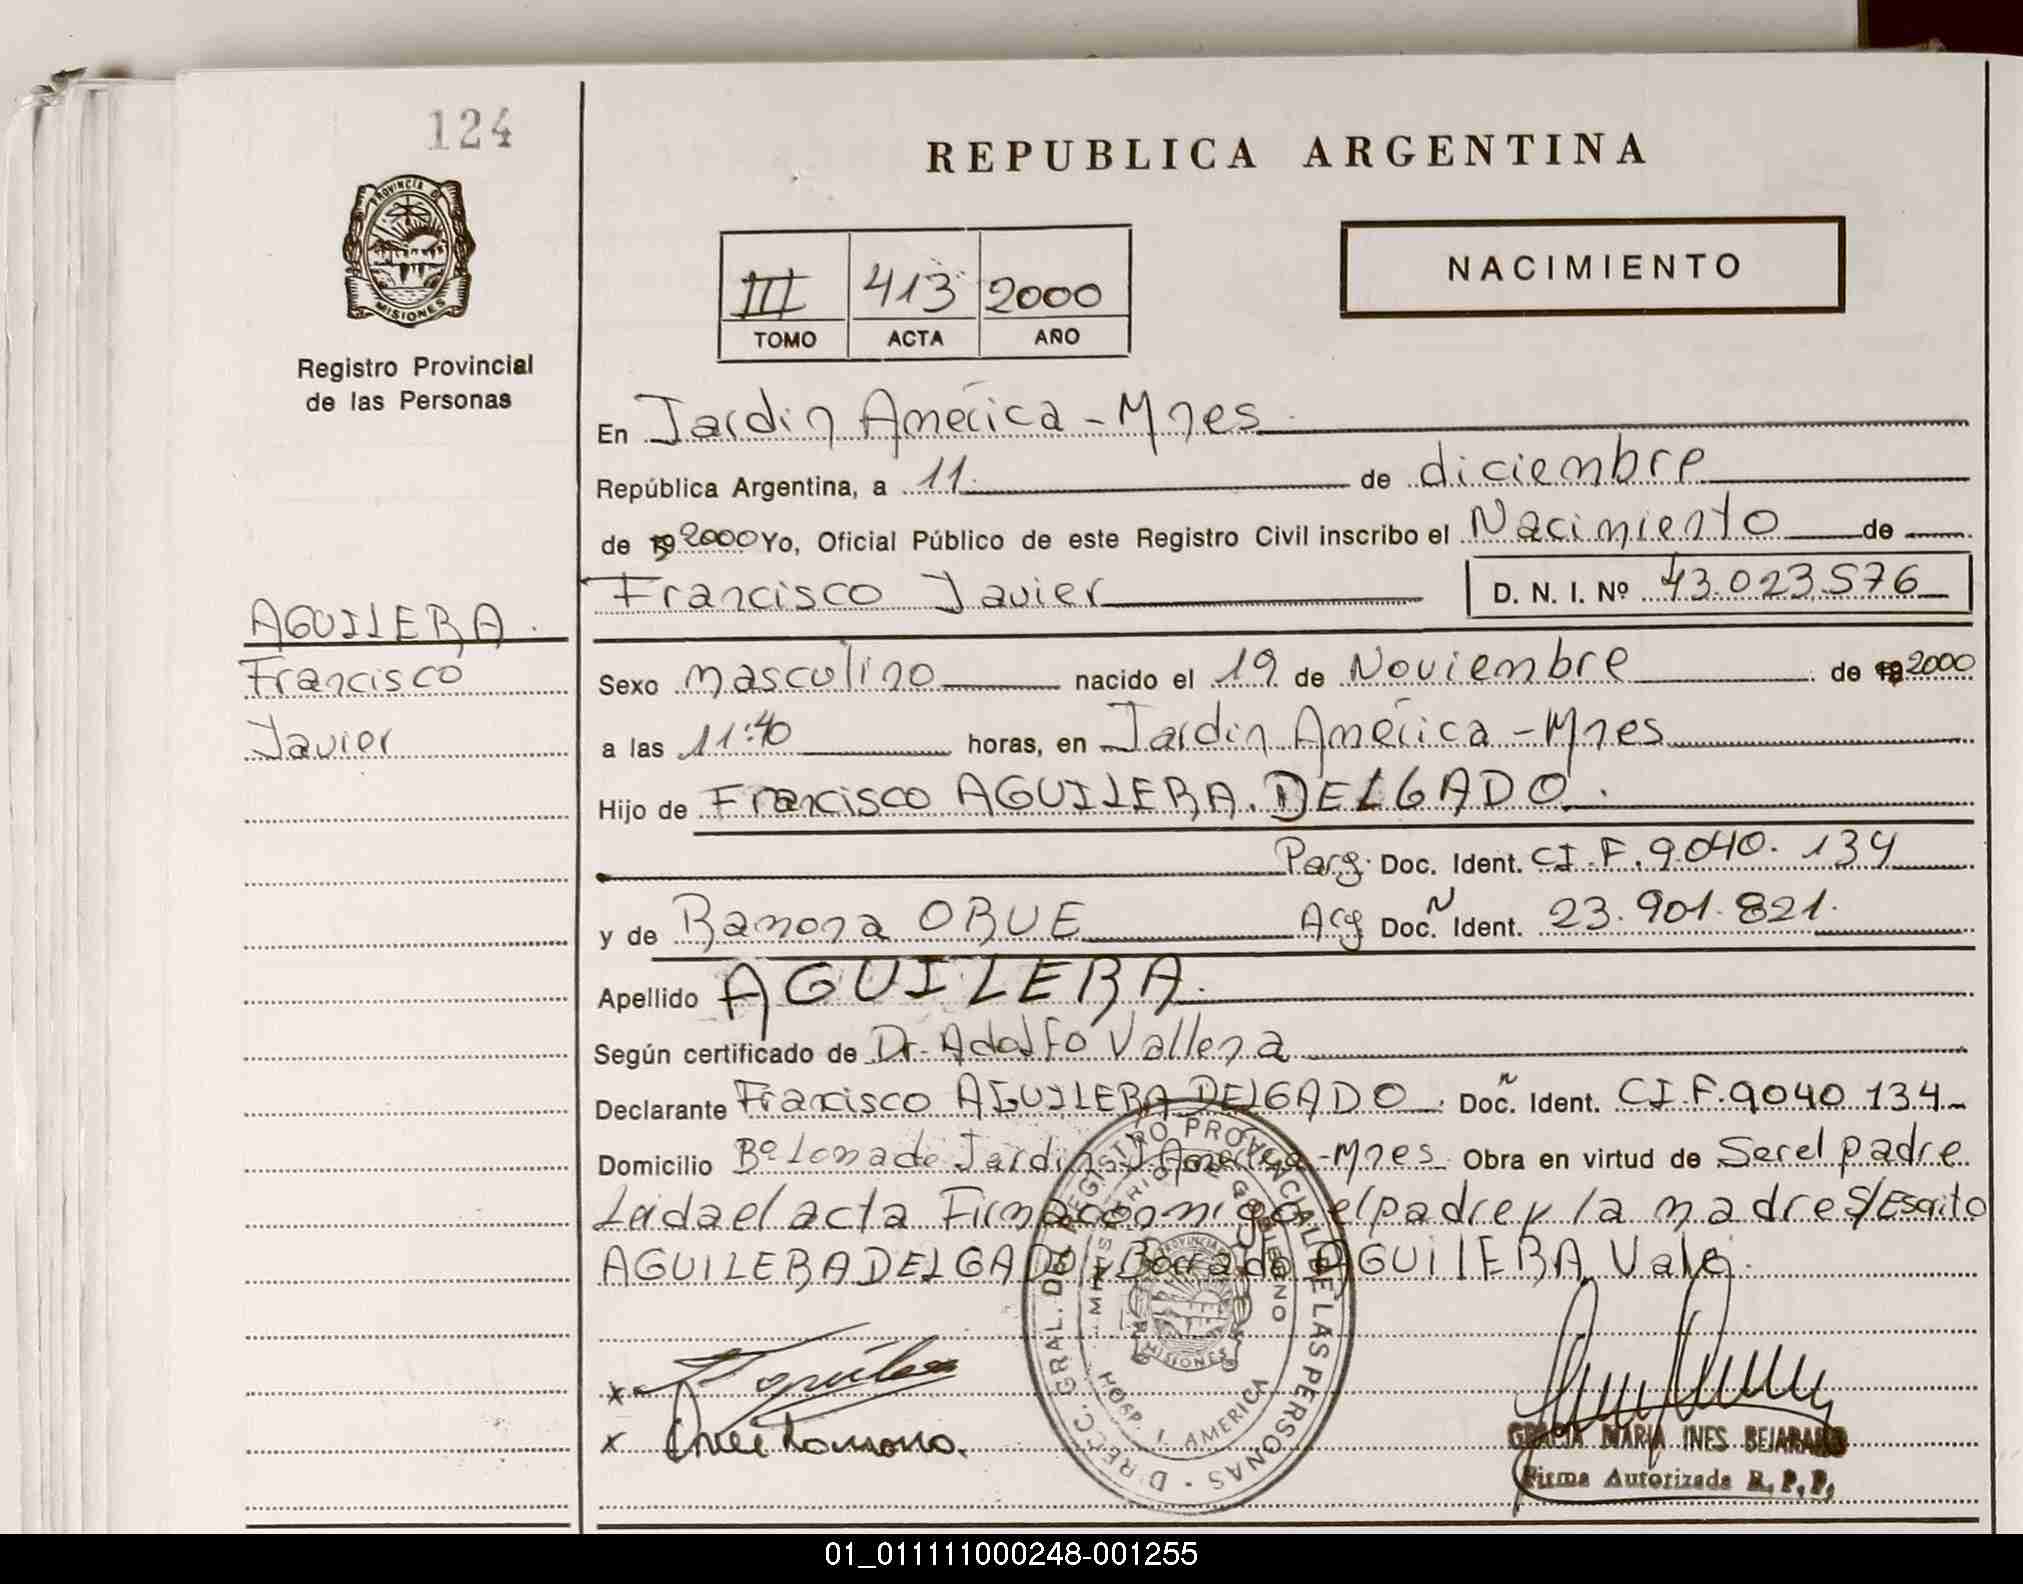 124
REPUBLICA ARGENTINA
PROVINCIA DE
MISIONES
NACIMIENTO
III 413 2000
TOMO ACTA AÑO
Registro Provincial
de las Personas
En Jardin América - Mnes
República Argentina, a 11 de diciembre
de 19 2000 Yo, Oficial Público de este Registro Civil inscribo el Nacimiento de
Francisco Javier D. N. I. Nº 43.023.576
AGUILERA
Francisco
Javier
Sexo masculino nacido el 19 de Noviembre de 19 2000
a las 11:40 horas, en Jardin América - Mnes
Hijo de Francisco AGUILERA DELGADO
Parg. Doc. Ident. CI.F.9.040.134
y de Ramona OBUE Arg Doc. N Ident. 23.901.821.
Apellido AGUILERA.
Según certificado de Dr. Adolfo Vallena
Declarante Francisco AGUILERA DELGADO Doc. N Ident. CI.F.9040.134
Domicilio Bº Loma de Jardin América - Mnes Obra en virtud de Ser el padre
Leida el acta Firma conmigo el padre y la madre S/Escrito
AGUILERA DELGADO y Borrado AGUILERA Vale.
DIRECC. GRAL. DEL REGISTRO PROVINCIAL DE LAS PERSONAS
MINISTERIO DE GOBIERNO
PROVINCIA DE
MISIONES
HOSP. J. AMERICA
x
x Obue Ramona.
GRACIA MARIA INES BEJARANO
Firma Autorizada R.P.P.
01_011111000248-001255